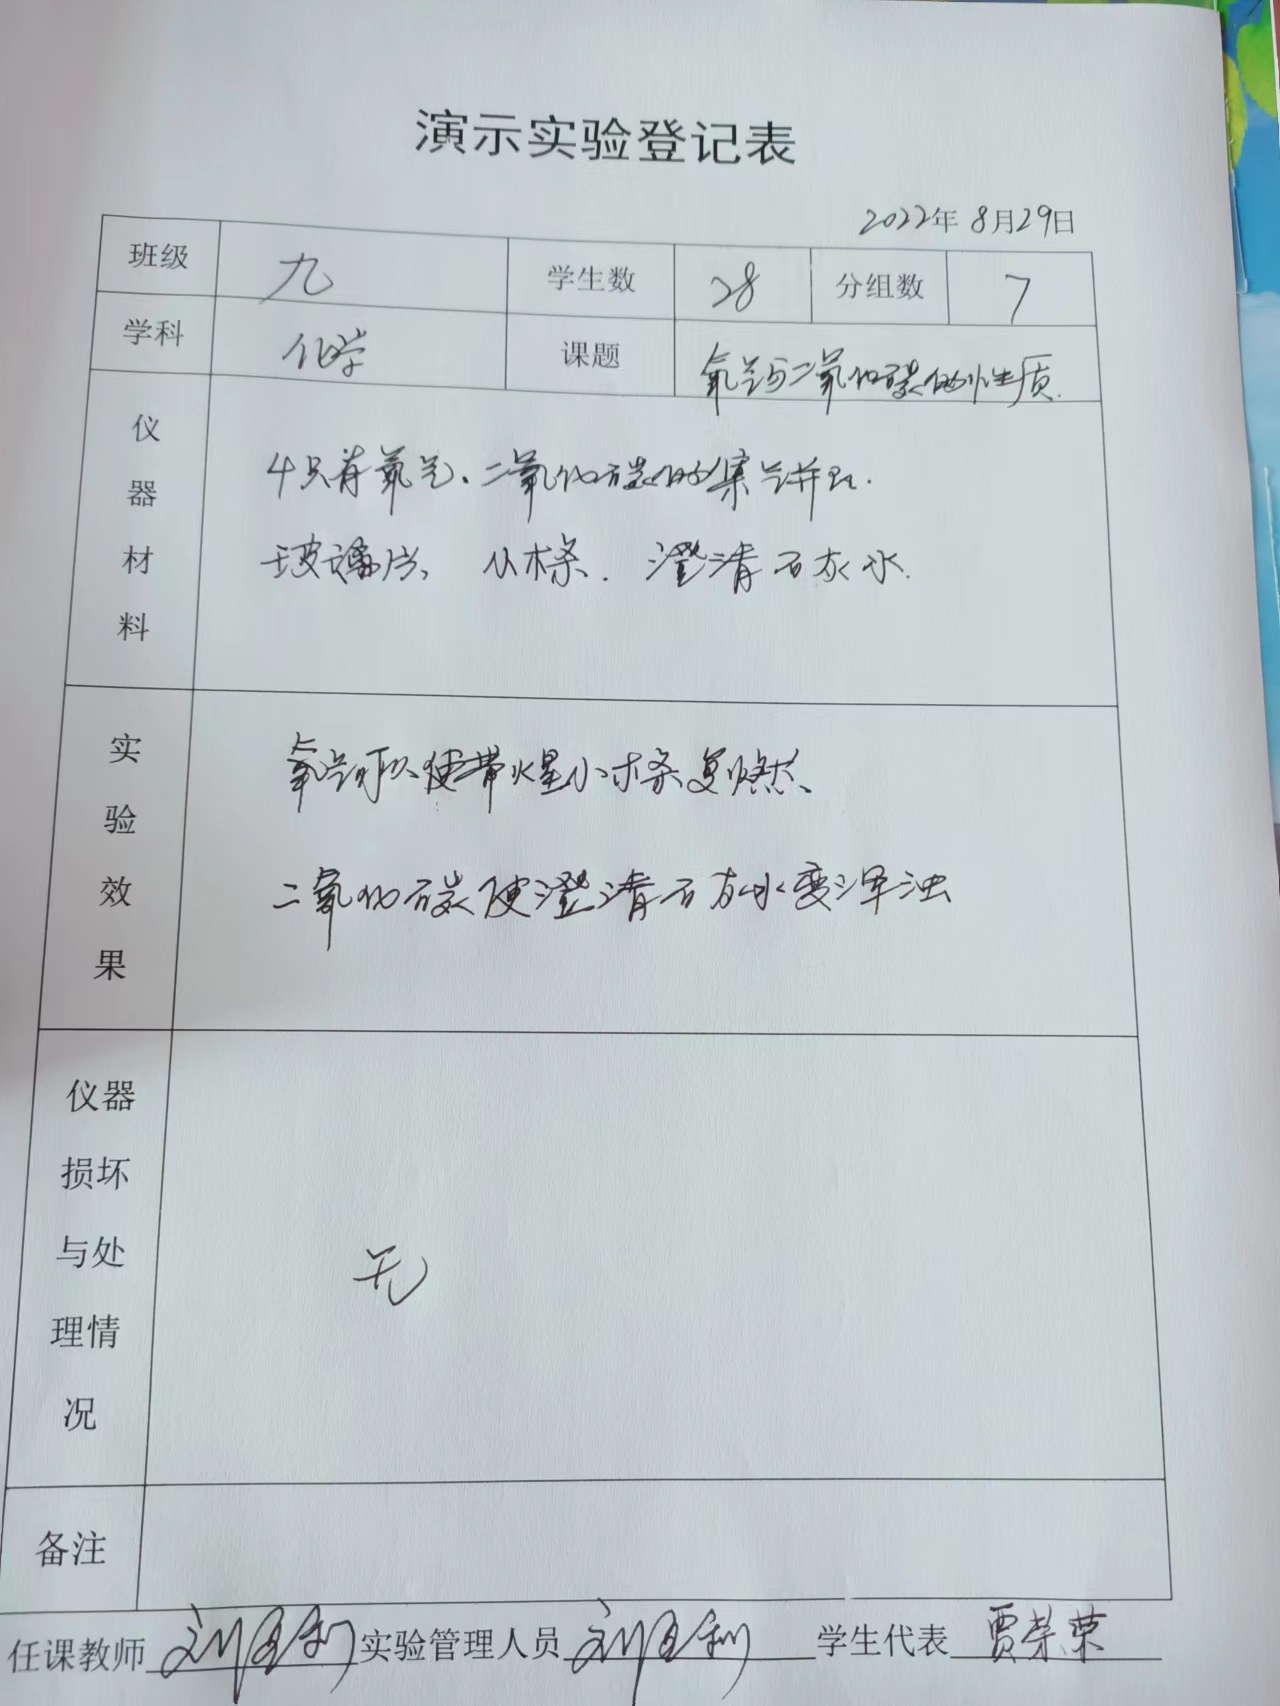 演示实验登记表
2022年 8月29日
班级 九 学生数 28 分组数 7
学科 化学 课题 氧气与二氧化碳的性质.
仪器材料
4只有氧气、二氧化碳的集气瓶.
玻璃片、小木条. 澄清石灰水.
实验效果
氧气可以使带火星小木条复燃、
二氧化碳使澄清石灰水变浑浊
仪器损坏与处理情况
无
备注
任课教师 刘 利 实验管理人员 刘 利 学生代表 贾荣荣